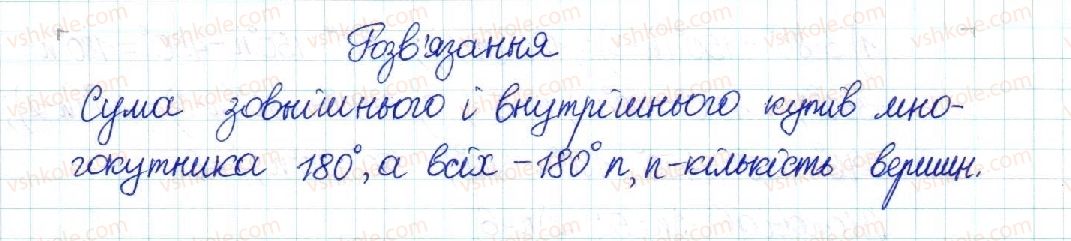 Розв'язання
Сума зовнішнього і внутрішнього кутів мно-
гокутника 180°, а всіх - 180° n, n - кількість вершин.